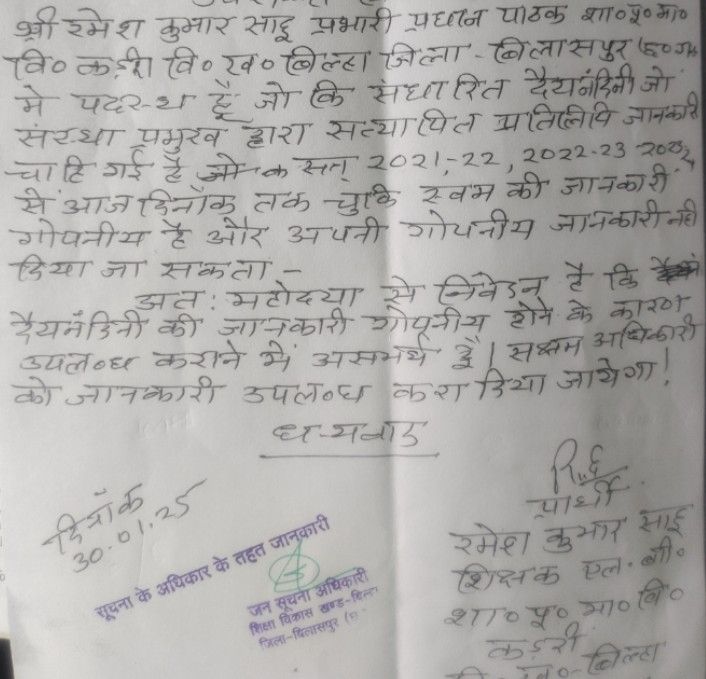 श्री रमेश कुमार साहू प्रभारी प्रधान पाठक शा० पू० मा०
वि० कड़री वि० ख० बिल्हा जिला - बिलासपुर (छ०ग०
मे पदस्थ हूँ जो कि संधारित दैयनंदिनी जो
संस्था प्रमुख द्वारा सत्यापित प्रतिलिपि जानकारी
चाहि गई है जो क सत् 2021-22, 2022-23
से आज दिनाँक तक चुकि स्वम की जानकारी
गोपनीय है और अपनी गोपनीय जानकारी नही
दिया जा सकता -
अतः महोदया से निवेदन है कि
दैयनंदिनी की जानकारी गोपनीय होने के कारण
उपलब्ध कराने में असमर्थ हूँ। सक्षम अधिकारी
को जानकारी उपलब्ध करा दिया जायेगा!
धन्यवाद
दिनाँक
30-01.25
सूचना के अधिकार के तहत जानकारी
जन सूचना अधिकारी
शिक्षा विकास खण्ड-बिल्हा
जिला-बिलासपुर (छ.
प्रार्थी
रमेश कुमार साहू
शिक्षक एल. बी.
शा० पू० मा० वि०
कड़री
वि० ख०- बिल्हा